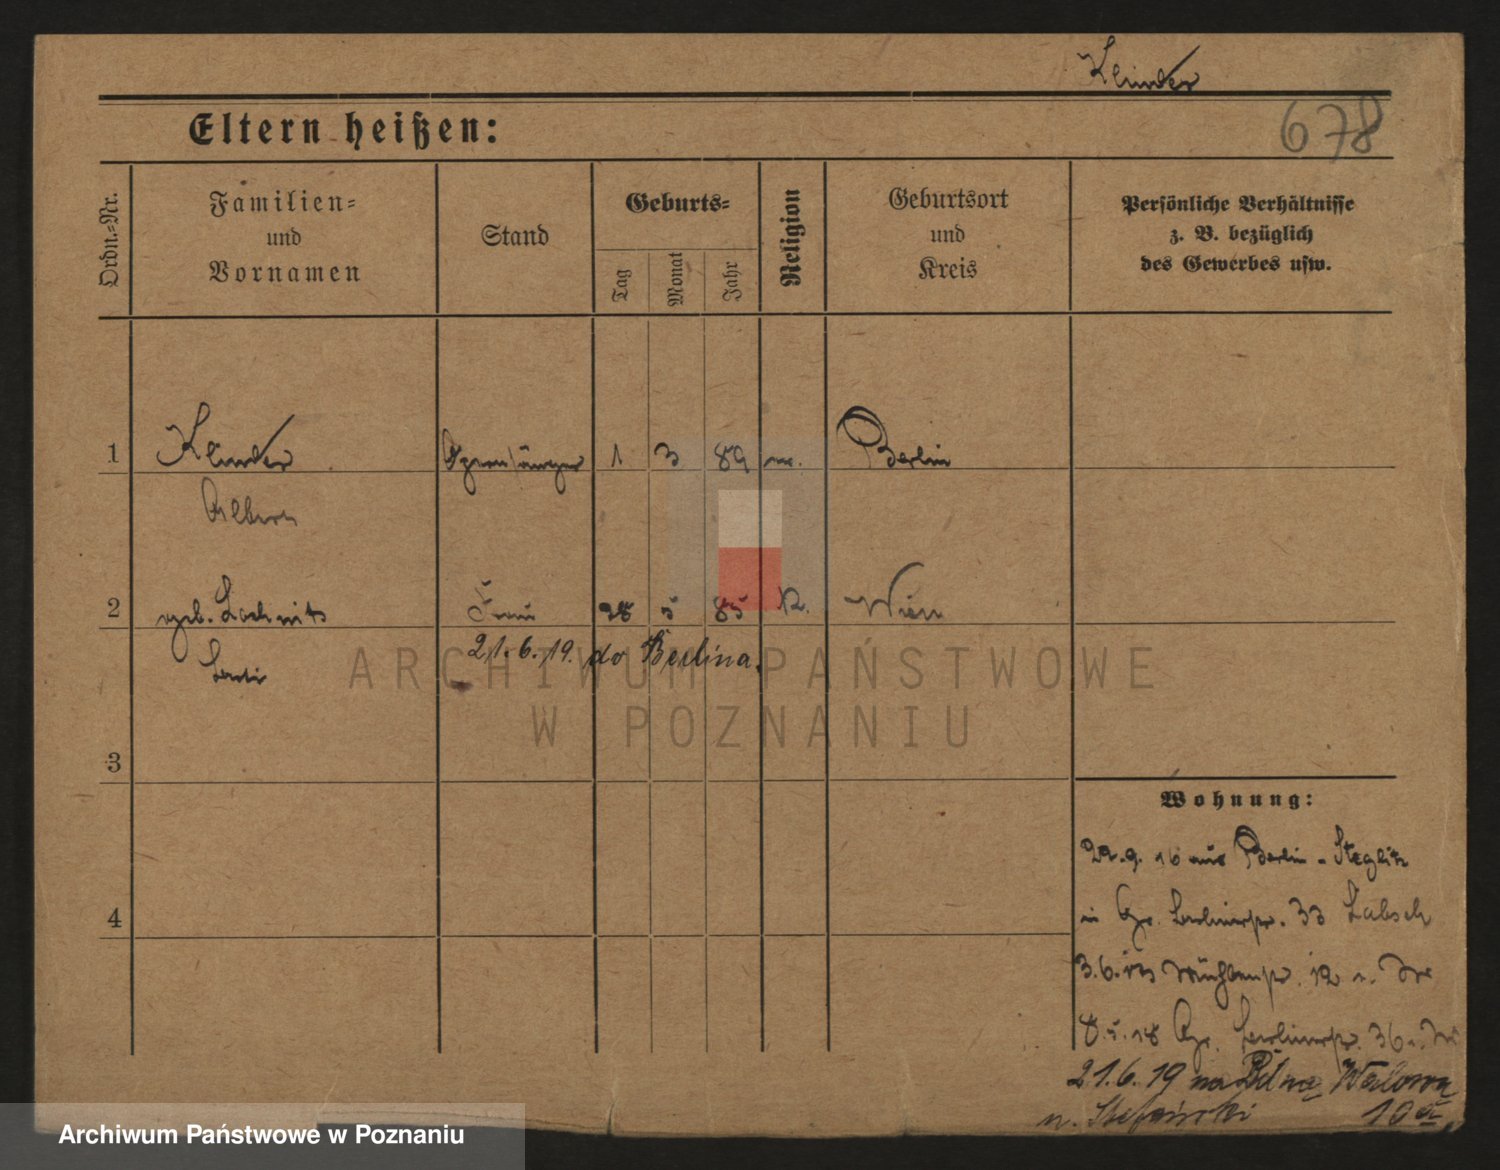 Klinder
678
Eltern heißen:
Ordn.-Nr.
Familien-
und
Vornamen
Stand
Geburts-
Tag
Monat
Jahr
Religion
Geburtsort
und
Kreis
Persönliche Verhältnisse
z. B. bezüglich
des Gewerbes usw.
1 Klinder Opernsänger 1 3 89 Berlin
2 geb. Frau 28 5 85 K. Wien
21.6.19. do Berlina.
ARCHIWUM PAŃSTWOWE
W POZNANIU
3
Wohnung:
29.9.16 aus Berlin-Steglitz
in Gr. Berlinerstr. 33
4
3.6. Mühlenstr. 12
8.5.18 Gr. Berlinerstr. 36
21.6.19 na
10
Archiwum Państwowe w Poznaniu